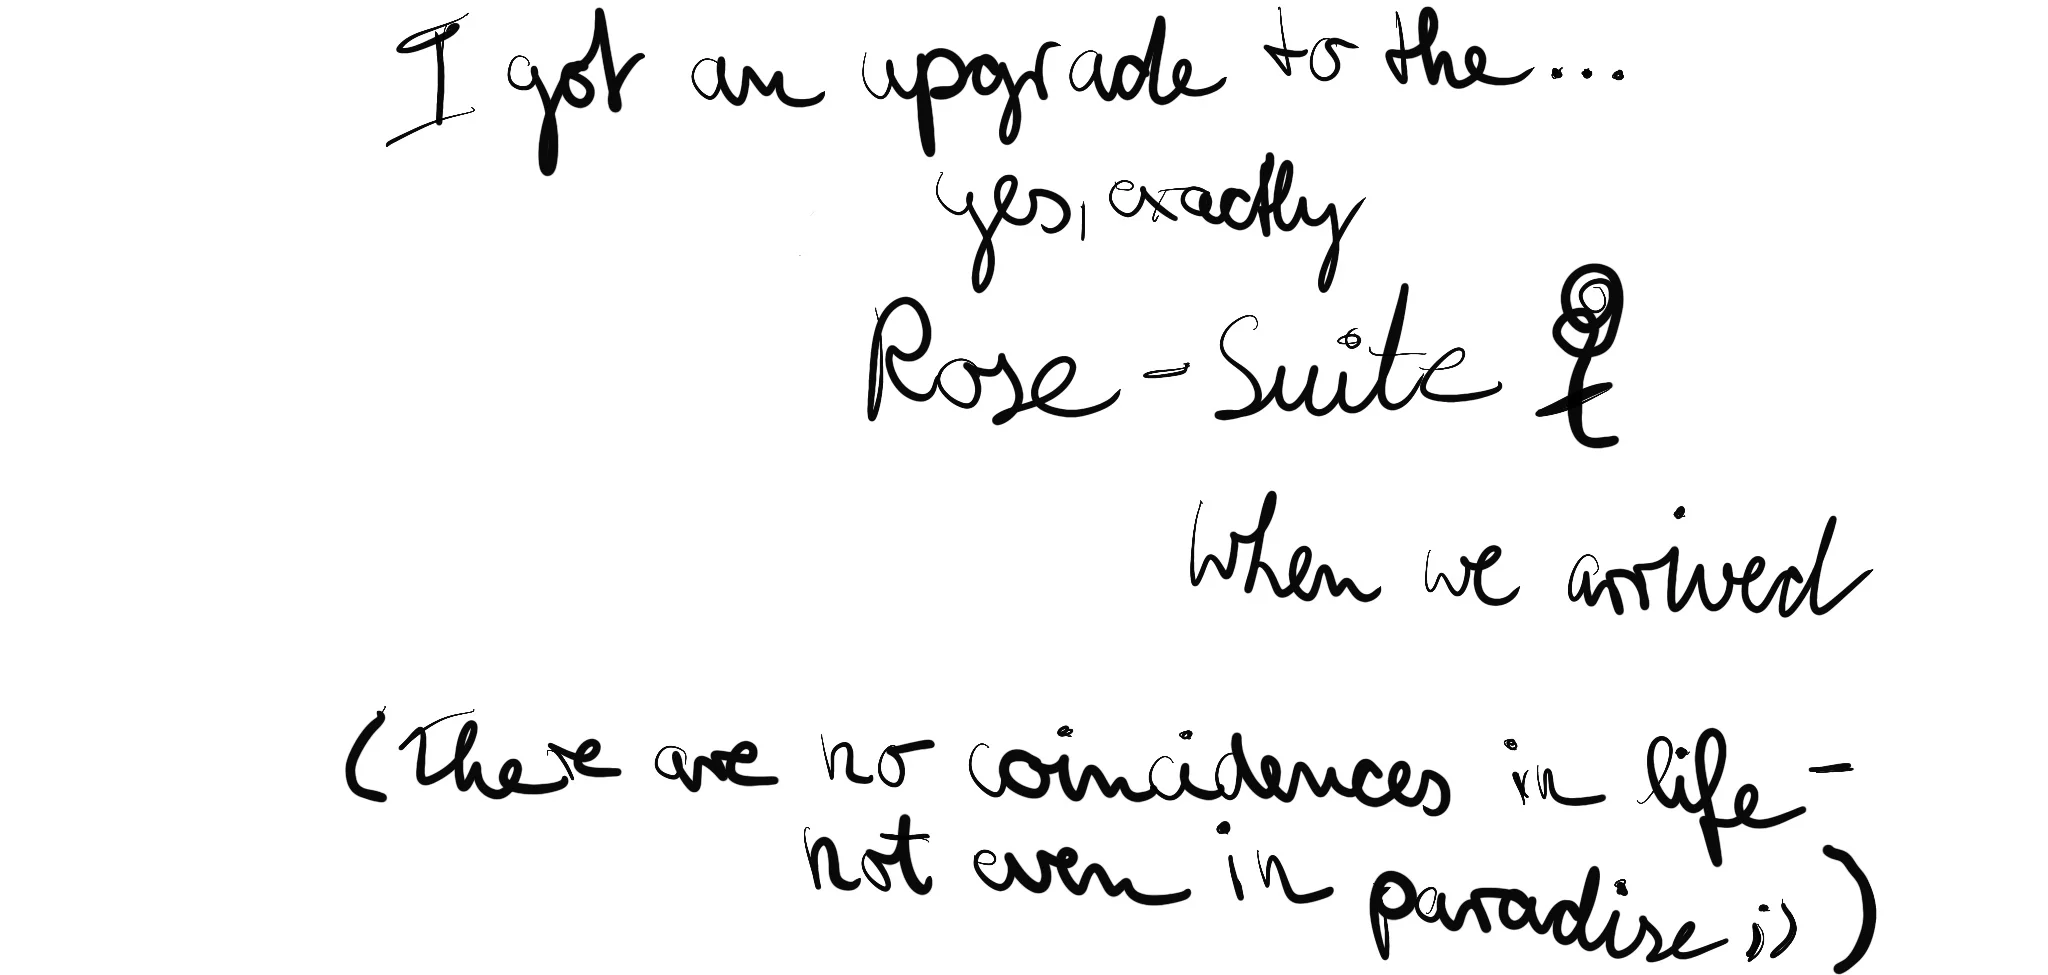 I got an upgrade to the...
yes, exactly
Rose-Suite
when we arrived
(There are no coincidences in life -
not even in paradise ;))